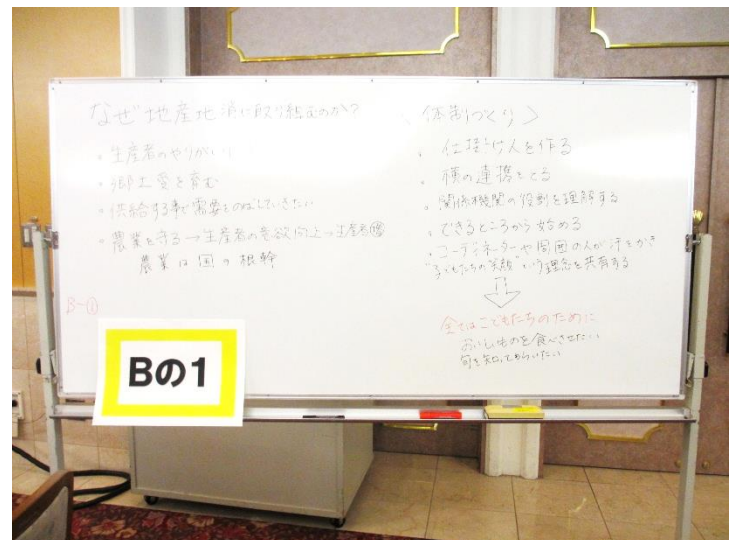 なぜ地産地消に取り組むのか?
・生産者のやりがい
・郷土愛を育む
・供給する事で需要をのばしていきたい
・農業を守る→生産者の意欲向上→生産者増
農業は国の根幹
B-①
Bの1
〈体制づくり〉
・仕掛け人を作る
・横の連携をとる
・関係機関の役割を理解する
・できるところから始める
・コーディネーターや周囲の人が汗をかき
"子どもたちの笑顔"という理念を共有する
全てはこどもたちのために
おいしいものを食べさせたい
旬を知ってもらいたい